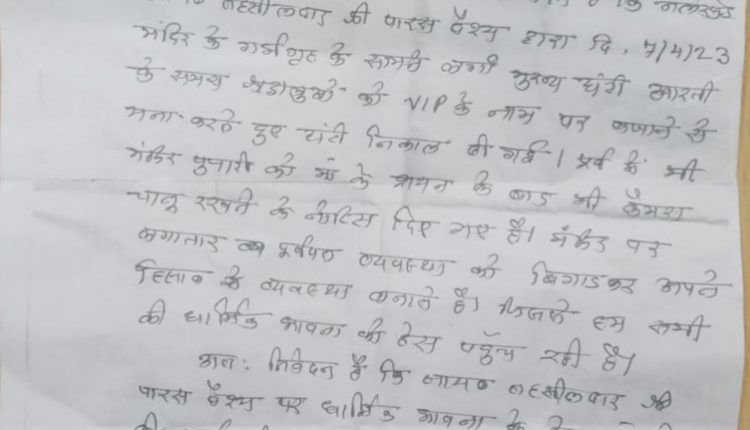 तहसीलदार श्री पारस वैश्य द्वारा दि. 7/4/23
मंदिर के गर्भगृह के सामने लगी मुख्य घंटी आरती
के समय श्रद्धालुओं को VIP के नाम पर बजाने से
मना करते हुए घंटी निकाल दी गई। पूर्व में भी
मंदिर पुजारी को माँ के शयन के बाद भी कैमरा
चालू रखने के नोटिस दिए गए है। मंदिर पर
लगातार पूर्वषण व्यवस्था को बिगाडकर अपने
हिसाब से व्यवस्था बनाते है। जिससे हम सभी
की धार्मिक भावना को ठेस पहुँच रही है।
अतः निवेदन है कि नायब तहसीलदार श्री
पारस वैश्य पर धार्मिक भावना के